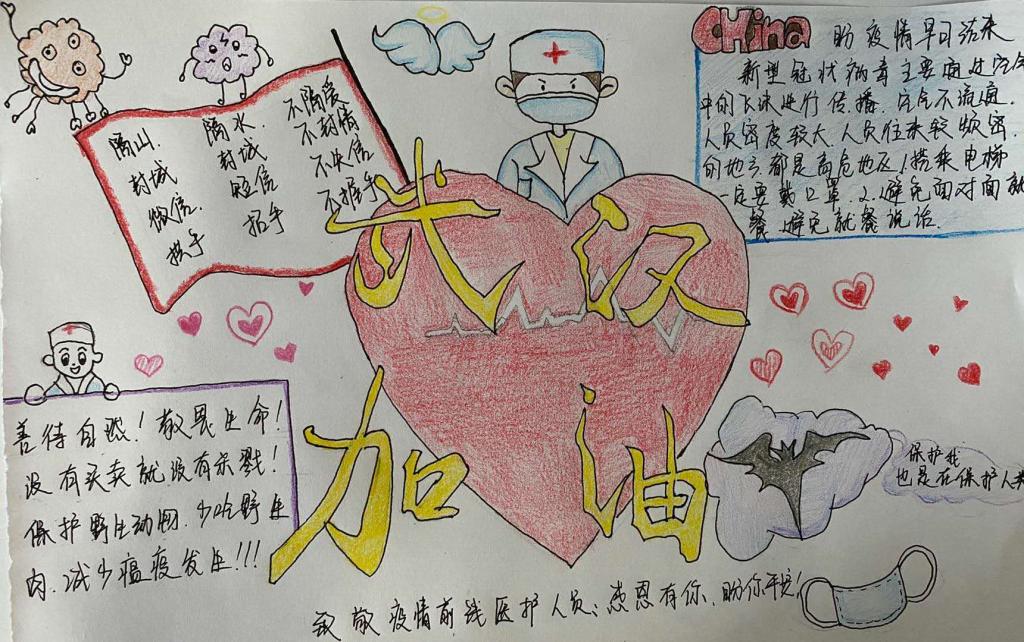 China 盼疫情早日结束
新型冠状病毒主要通过空气
中的飞沫进行传播.空气不流通.
人员密度较大.人员往来较频密.
的地方都是高危地区1.搭乘电梯
一定要戴口罩.2.避免面对面就
餐.避免就餐说话.
隔山.
封城
微信.
携手
隔水.
封城
短信
招手
不隔爱
不封情
不失信
不握手
武汉
加油
善待自然!敬畏生命!
没有买卖就没有杀戮!
保护野生动物.少吃野生
肉.减少瘟疫发生!!!
保护我
也是在保护人类
致敬疫情前线医护人员、感恩有你.盼你平安!